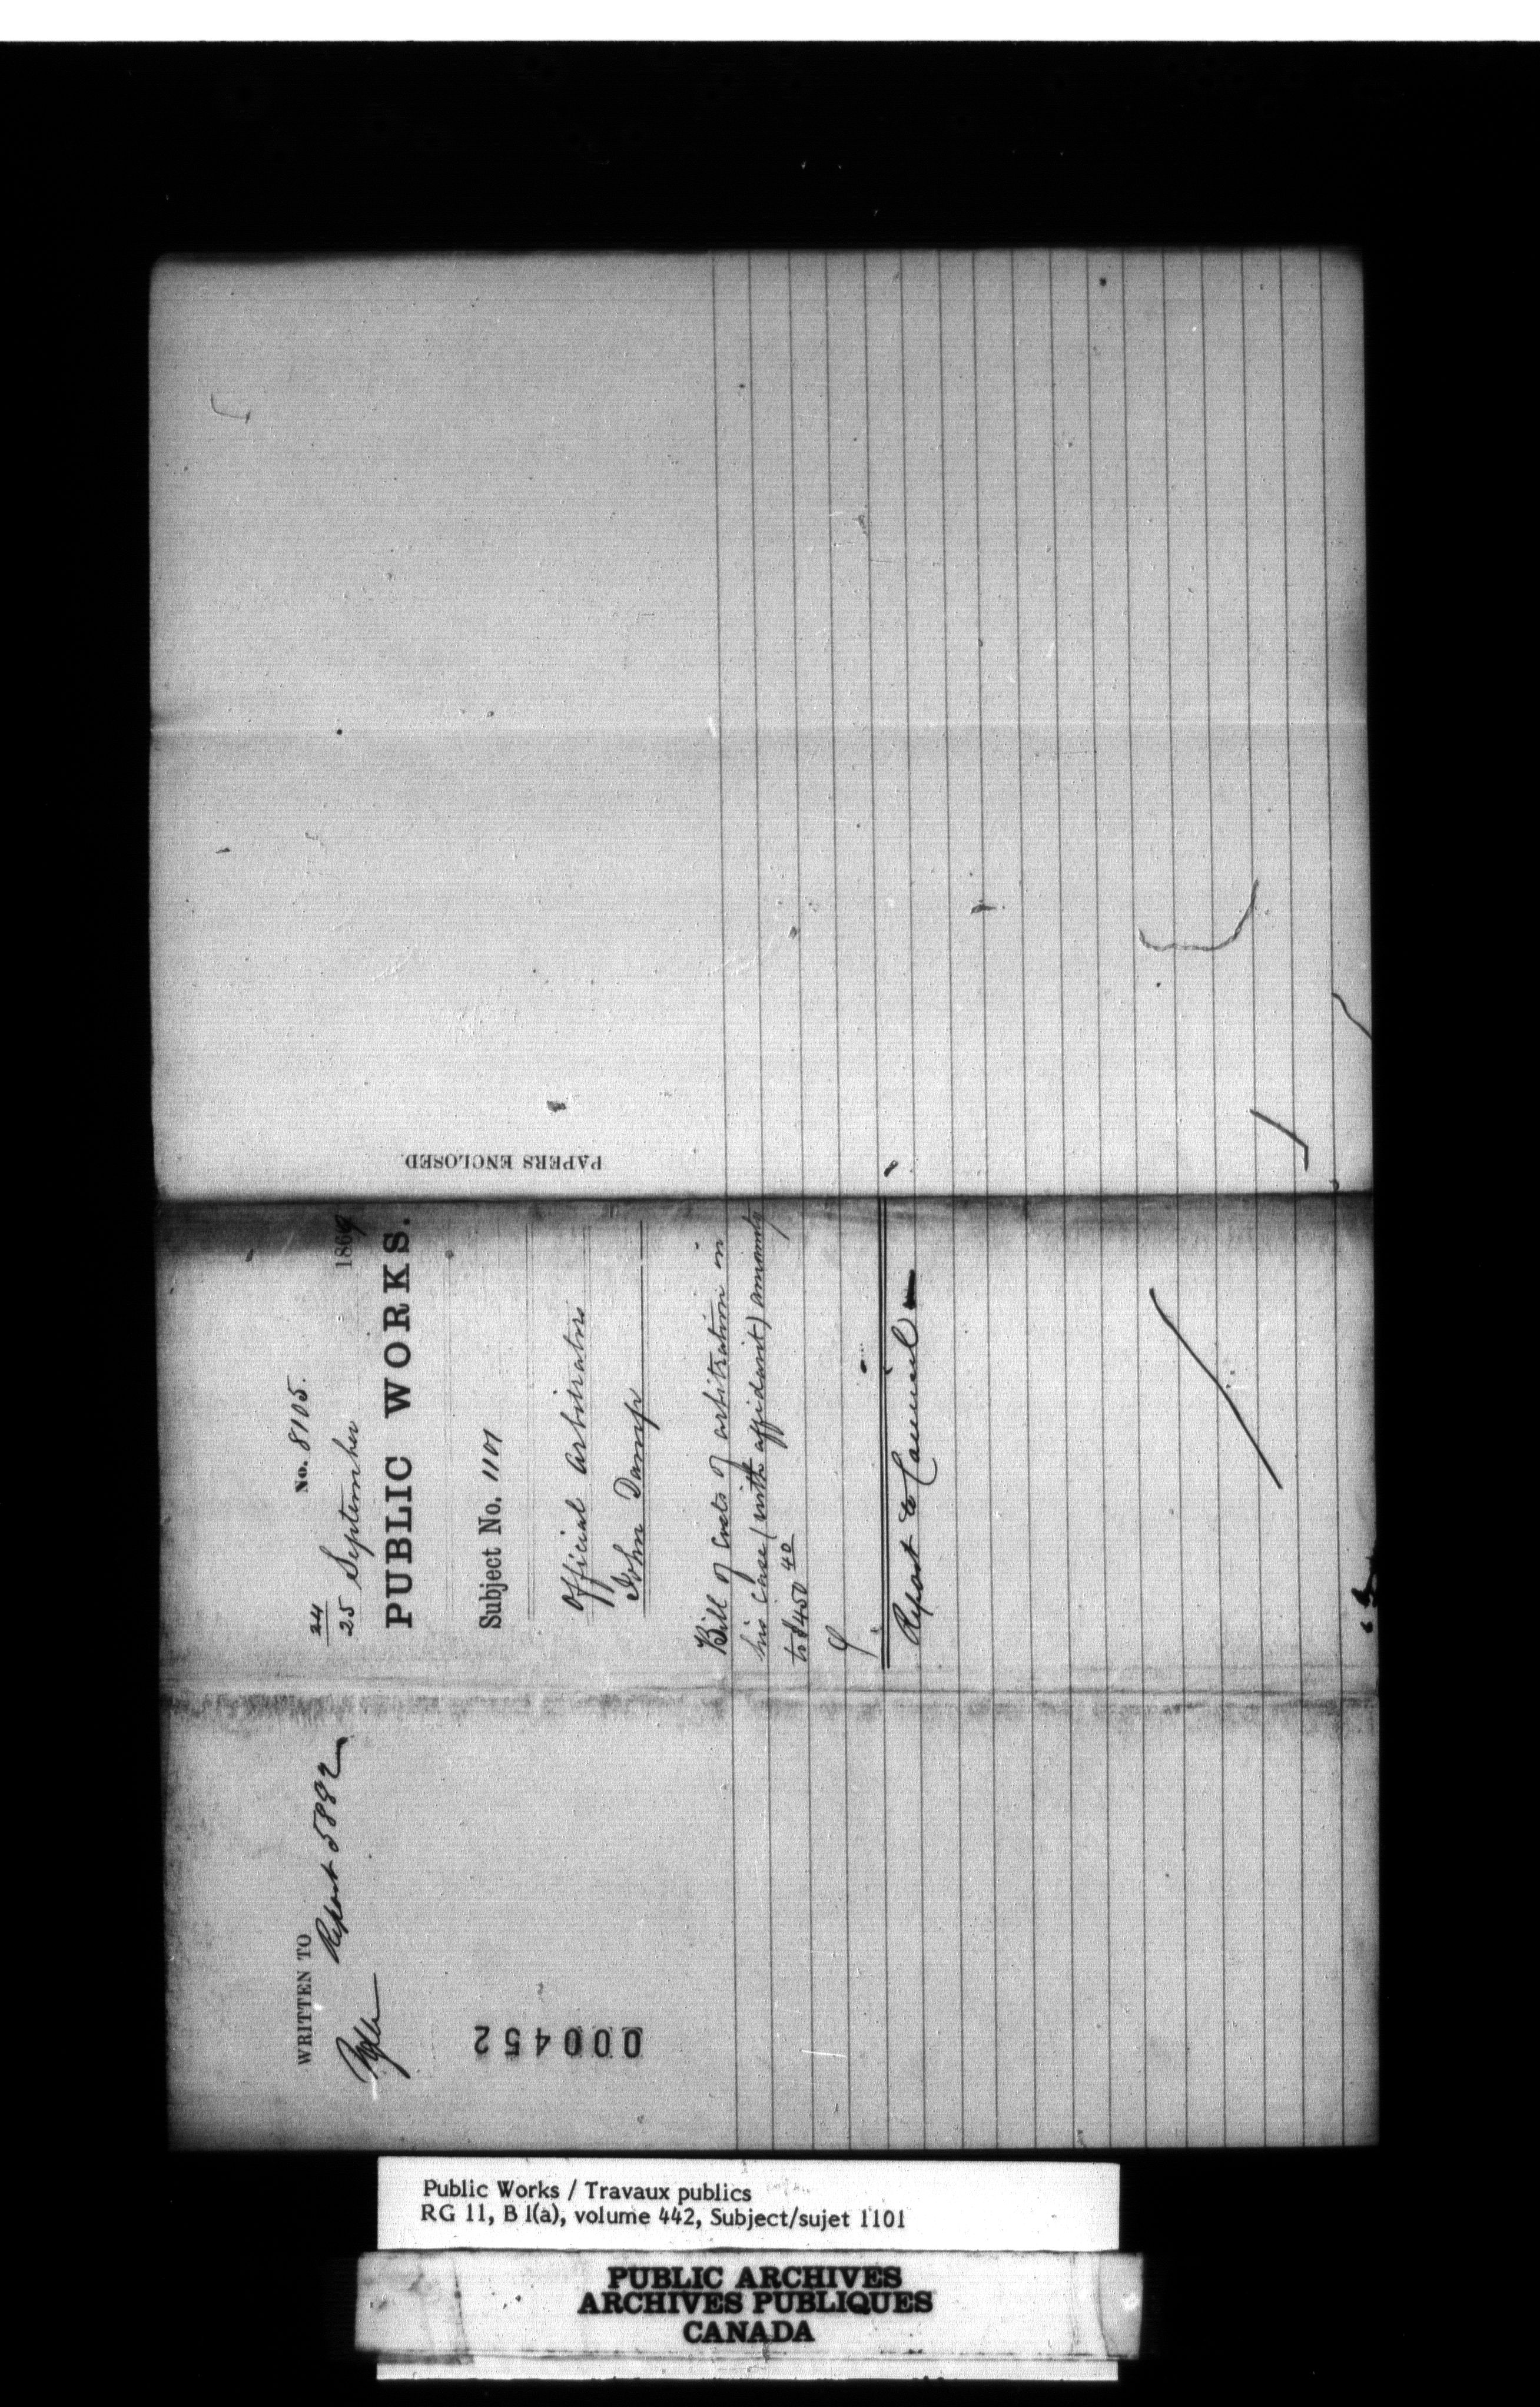 PAPERS ENCLOSED.
No. 8105.
24
25 September 1869
PUBLIC WORKS.
Subject No. 1101
Official Arbitrators
John Damp
Bill of Costs of arbitration in
his case (with affidavit) amounting
to $450 40
Report to Council
WRITTEN TO
Report 5882
000452
Public Works / Travaux publics
RG 11, B 1(a), volume 442, Subject/sujet 1101
PUBLIC ARCHIVES
ARCHIVES PUBLIQUES
CANADA